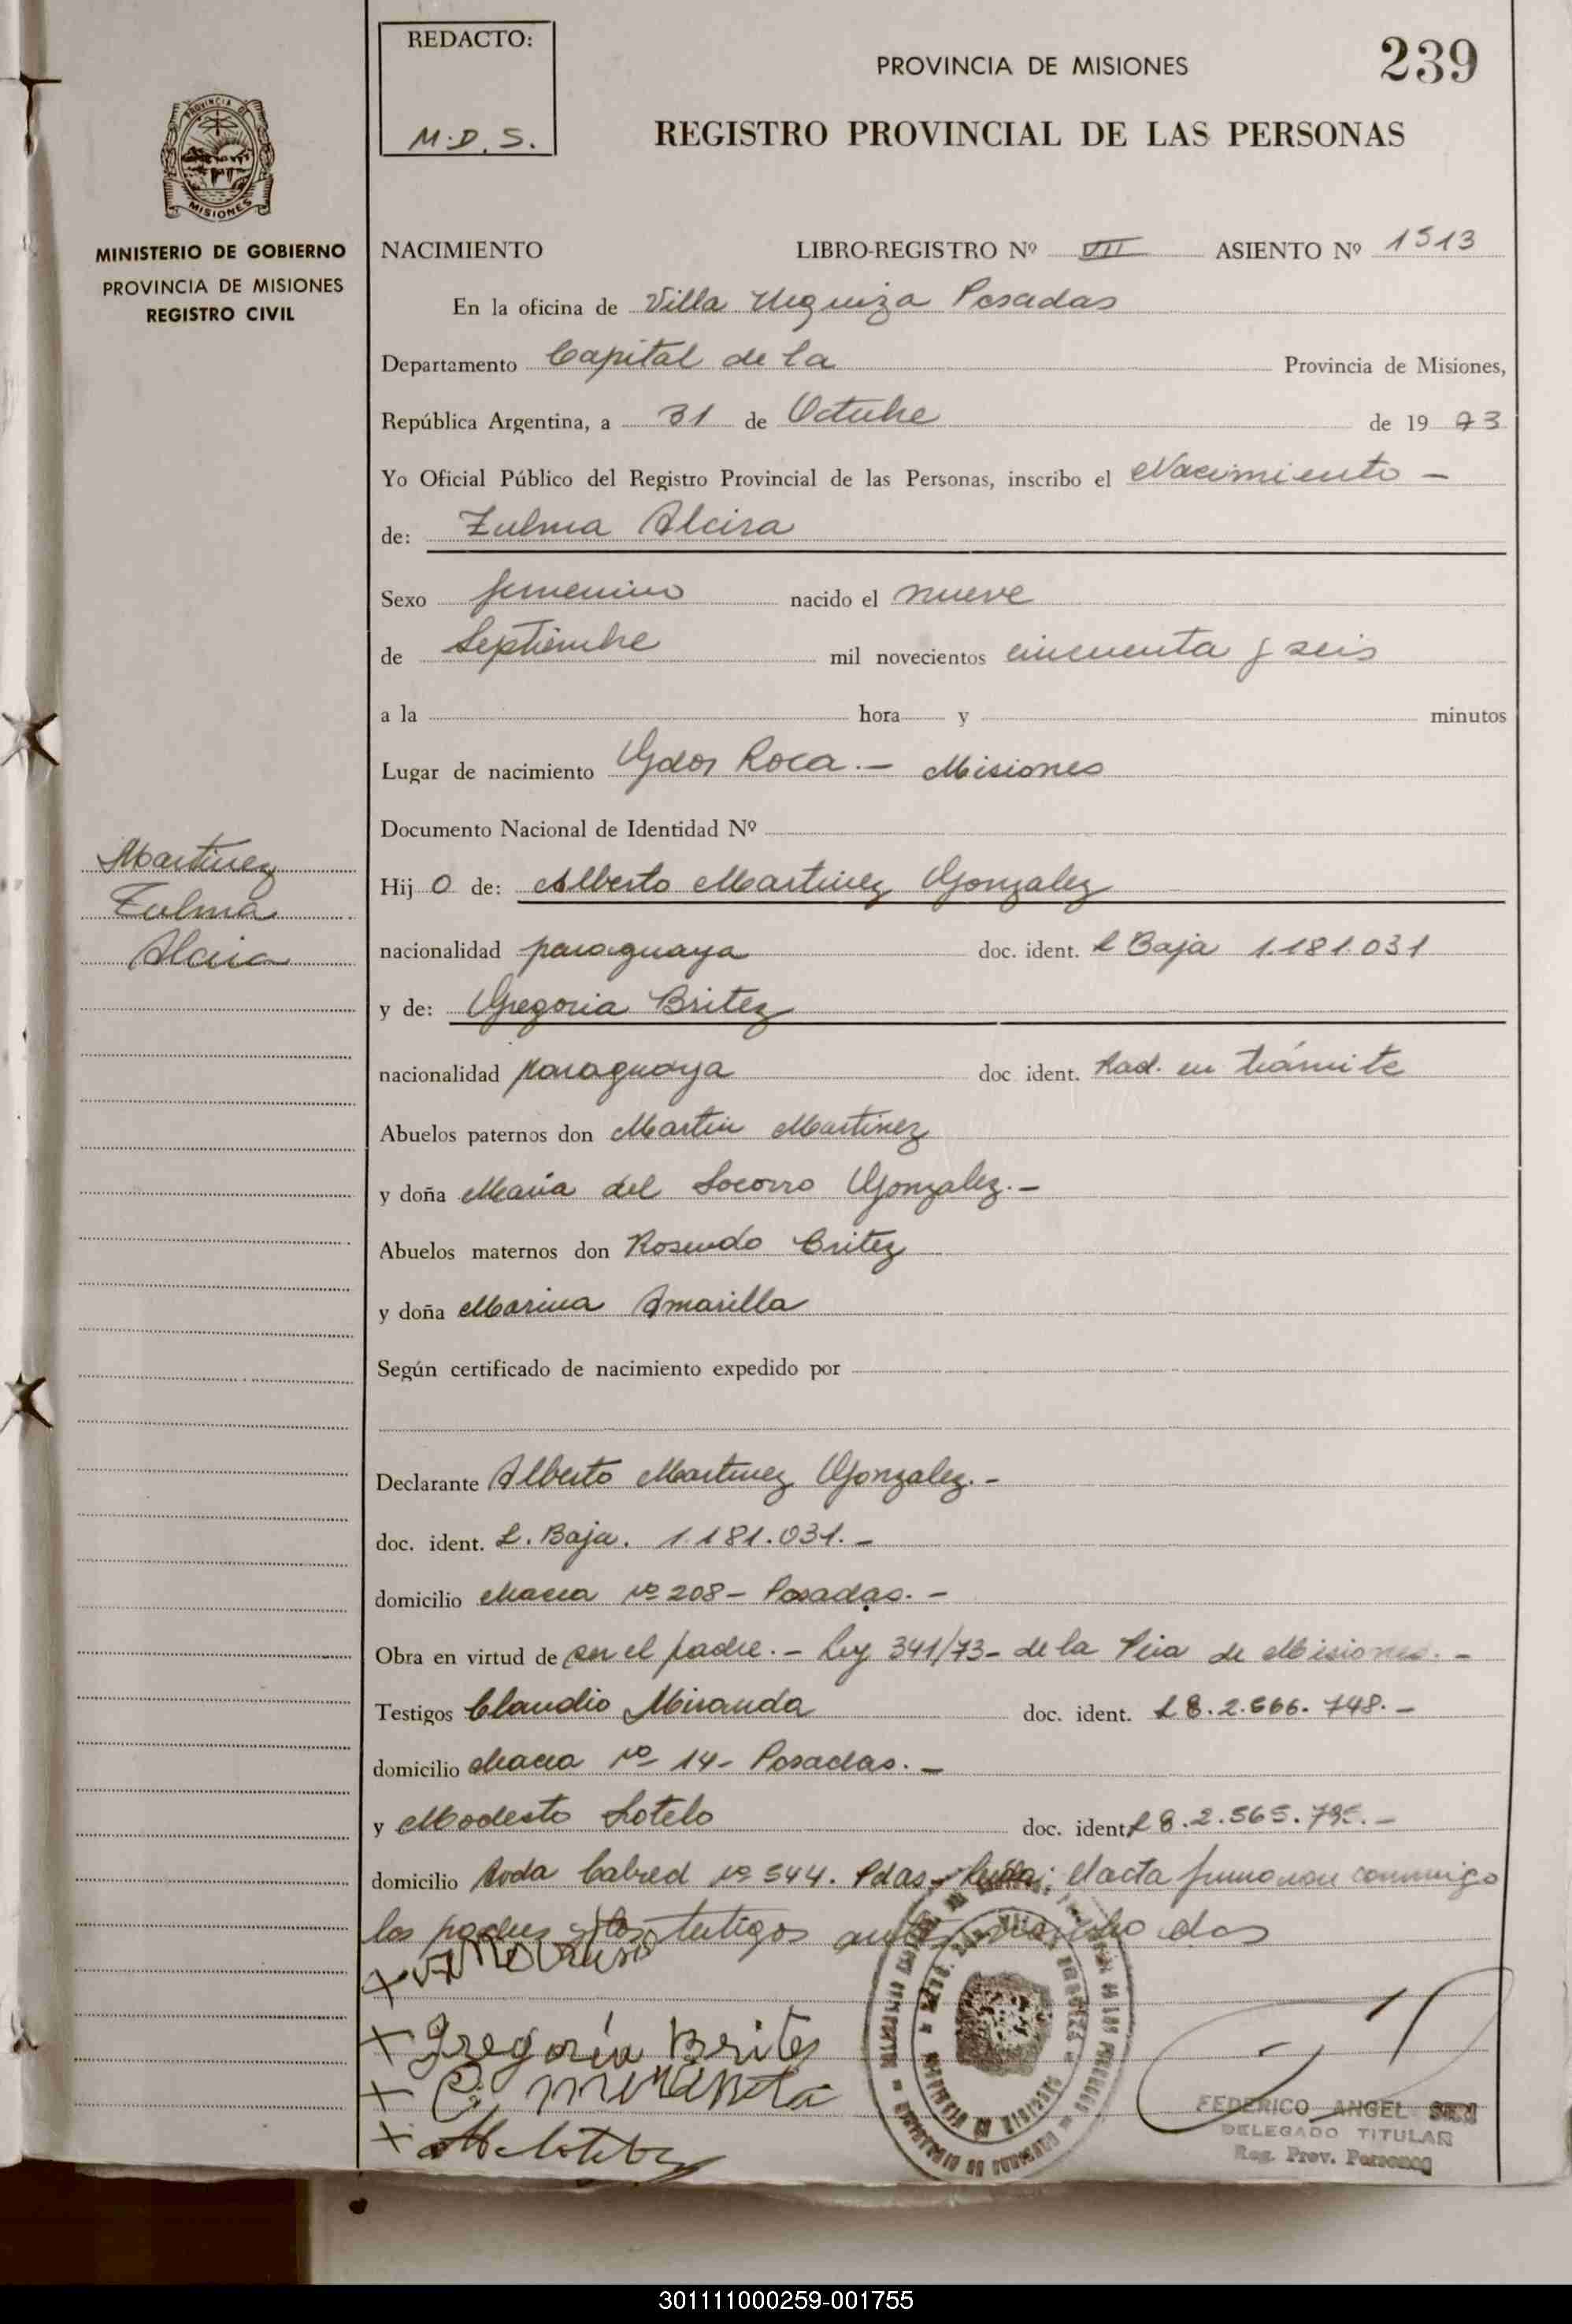 REDACTO:
M.D.S.
PROVINCIA DE MISIONES
239
REGISTRO PROVINCIAL DE LAS PERSONAS
PROVINCIA DE
MISIONES
MINISTERIO DE GOBIERNO
PROVINCIA DE MISIONES
REGISTRO CIVIL
NACIMIENTO LIBRO-REGISTRO Nº VII ASIENTO Nº 1513
En la oficina de Villa Urquiza Posadas
Departamento Capital de la Provincia de Misiones,
República Argentina, a 31 de Octubre de 19 73
Yo Oficial Público del Registro Provincial de las Personas, inscribo el Nacimiento -
de: Zulma Alcira
Sexo femenino nacido el nueve
de Septiembre mil novecientos cincuenta y seis
a la hora y minutos
Lugar de nacimiento Gdor Roca.- Misiones
Documento Nacional de Identidad Nº
Martinez
Zulma
Alcira
Hij o de: Alberto Martinez Gonzalez
nacionalidad paraguaya doc. ident. L Baja 1.181.031
y de: Gregoria Britez
nacionalidad paraguaya doc ident. Rad. en trámite
Abuelos paternos don Martin Martinez
y doña Maria del Socorro Gonzalez.-
Abuelos maternos don Rosendo Britez
y doña Marina Amarilla
Según certificado de nacimiento expedido por
Declarante Alberto Martinez Gonzalez.-
doc. ident. L. Baja. 1.181.031.-
domicilio Nº 208- Posadas.-
Obra en virtud de ser el padre.- Ley 341/73- de la Pcia de Misiones.-
Testigos Claudio Miranda doc. ident. L 8.2.666.748.-
domicilio Nº 14- Posadas.-
y Modesto Sotelo doc. ident L 8.2.565.795.-
domicilio Avda Cabred Nº 544. Pdas. acta conmigo
los padres y los testigos
x
x Gregoria Brites
x C. miranda
x
FEDERICO ANGEL
DELEGADO TITULAR
Reg. Prov. Personas
301111000259-001755